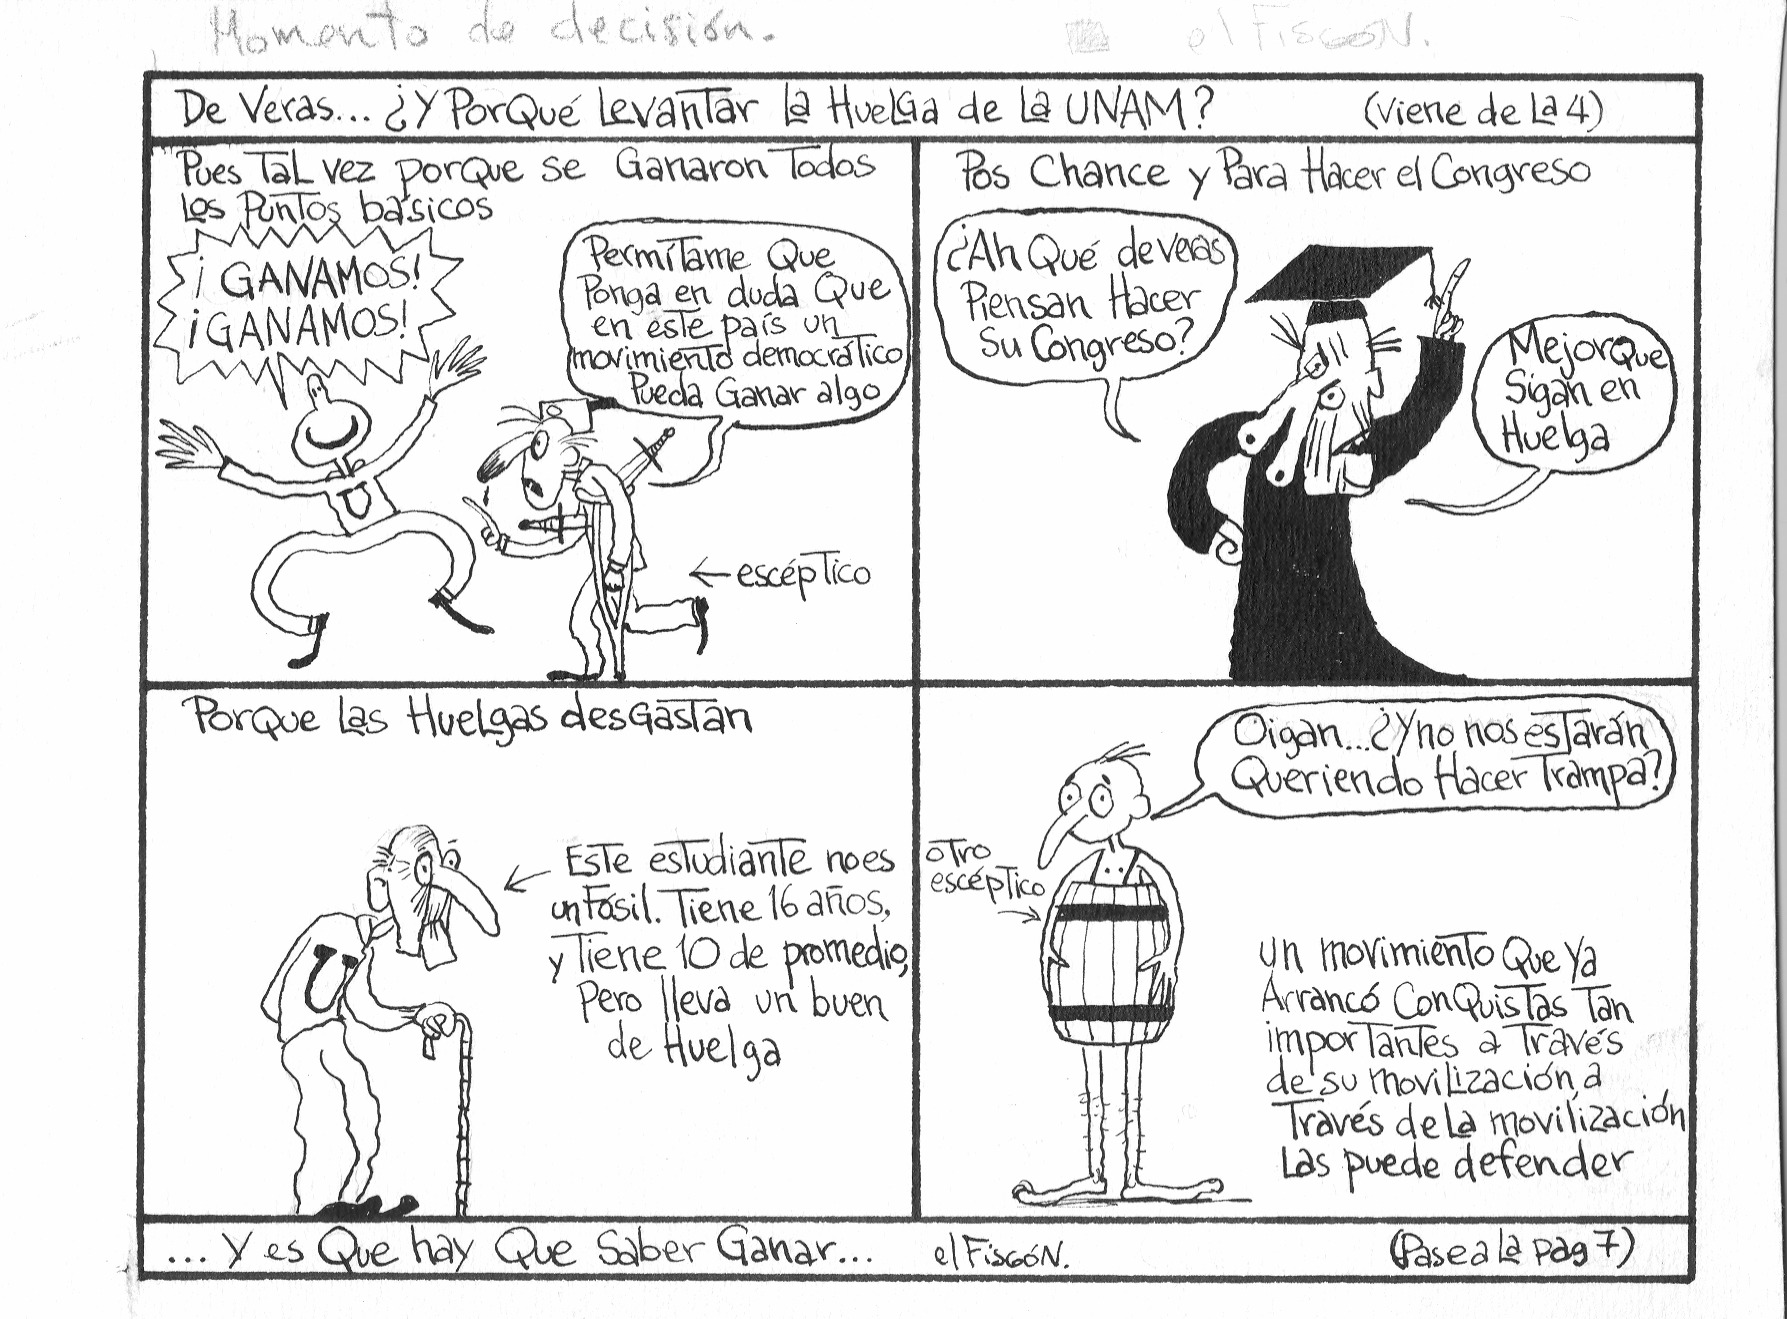 Momento de decisión.
el FisgóN.
De Veras... ¿Y PorQué Levantar La Huelga de La UNAM?
(Viene de La 4)
Pues Tal vez porque se Ganaron Todos
Los Puntos básicos
¡GANAMOS!
¡GANAMOS!
Permítame Que
Ponga en duda Que
en este país un
movimiento democrático
Pueda Ganar algo
← escéptico
Pos Chance y Para Hacer el Congreso
¿Ah Qué de veras
Piensan Hacer
Su Congreso?
Mejor que
Sigan en
Huelga
Porque Las Huelgas desgastan
Este estudiante no es
un Fósil. Tiene 16 años,
y Tiene 10 de promedio,
Pero lleva un buen
de Huelga
Oigan... ¿Y no nos estarán
Queriendo Hacer Trampa?
otro
escéptico
un movimiento Que Ya
Arrancó Conquistas Tan
importantes a Través
de su movilización, a
Través de La movilización
Las puede defender
... Y es Que hay Que Saber Ganar...
el FisgóN.
(Pase a La pag 7)